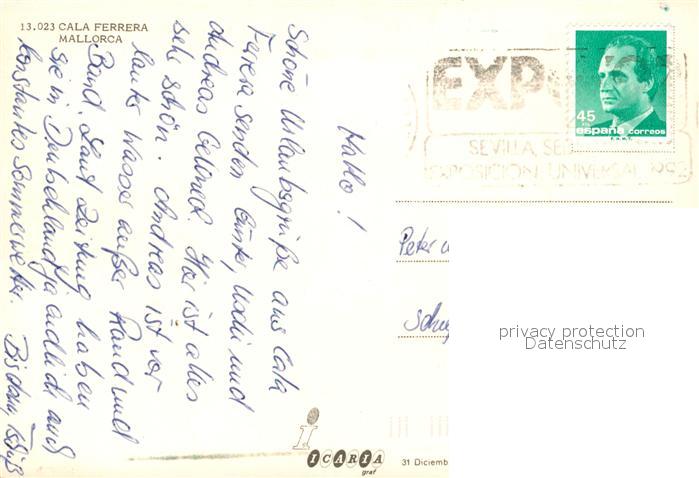 13.023 CALA FERRERA
MALLORCA
Hallo!
Schöne Urlaubsgrüße aus Cala
Ferera senden Günter, Uschi und
Andreas Hier ist alles
seh schön. Andreas ist vor
lauter Wasser außer Rand und
Band. Laut Zeitung haben
sie in Deutschland ja endlich auch
konstantes Sommerwetter. Bis dann, Tschüß
EXPO
SEVILLA, SE
EXPOSICION UNIVERSAL 1992
45
PTA
españa correos
F.N.M.T.
Peter u
Schu
privacy protection
Datenschutz
i
ICARIA
graf
31 Diciemb